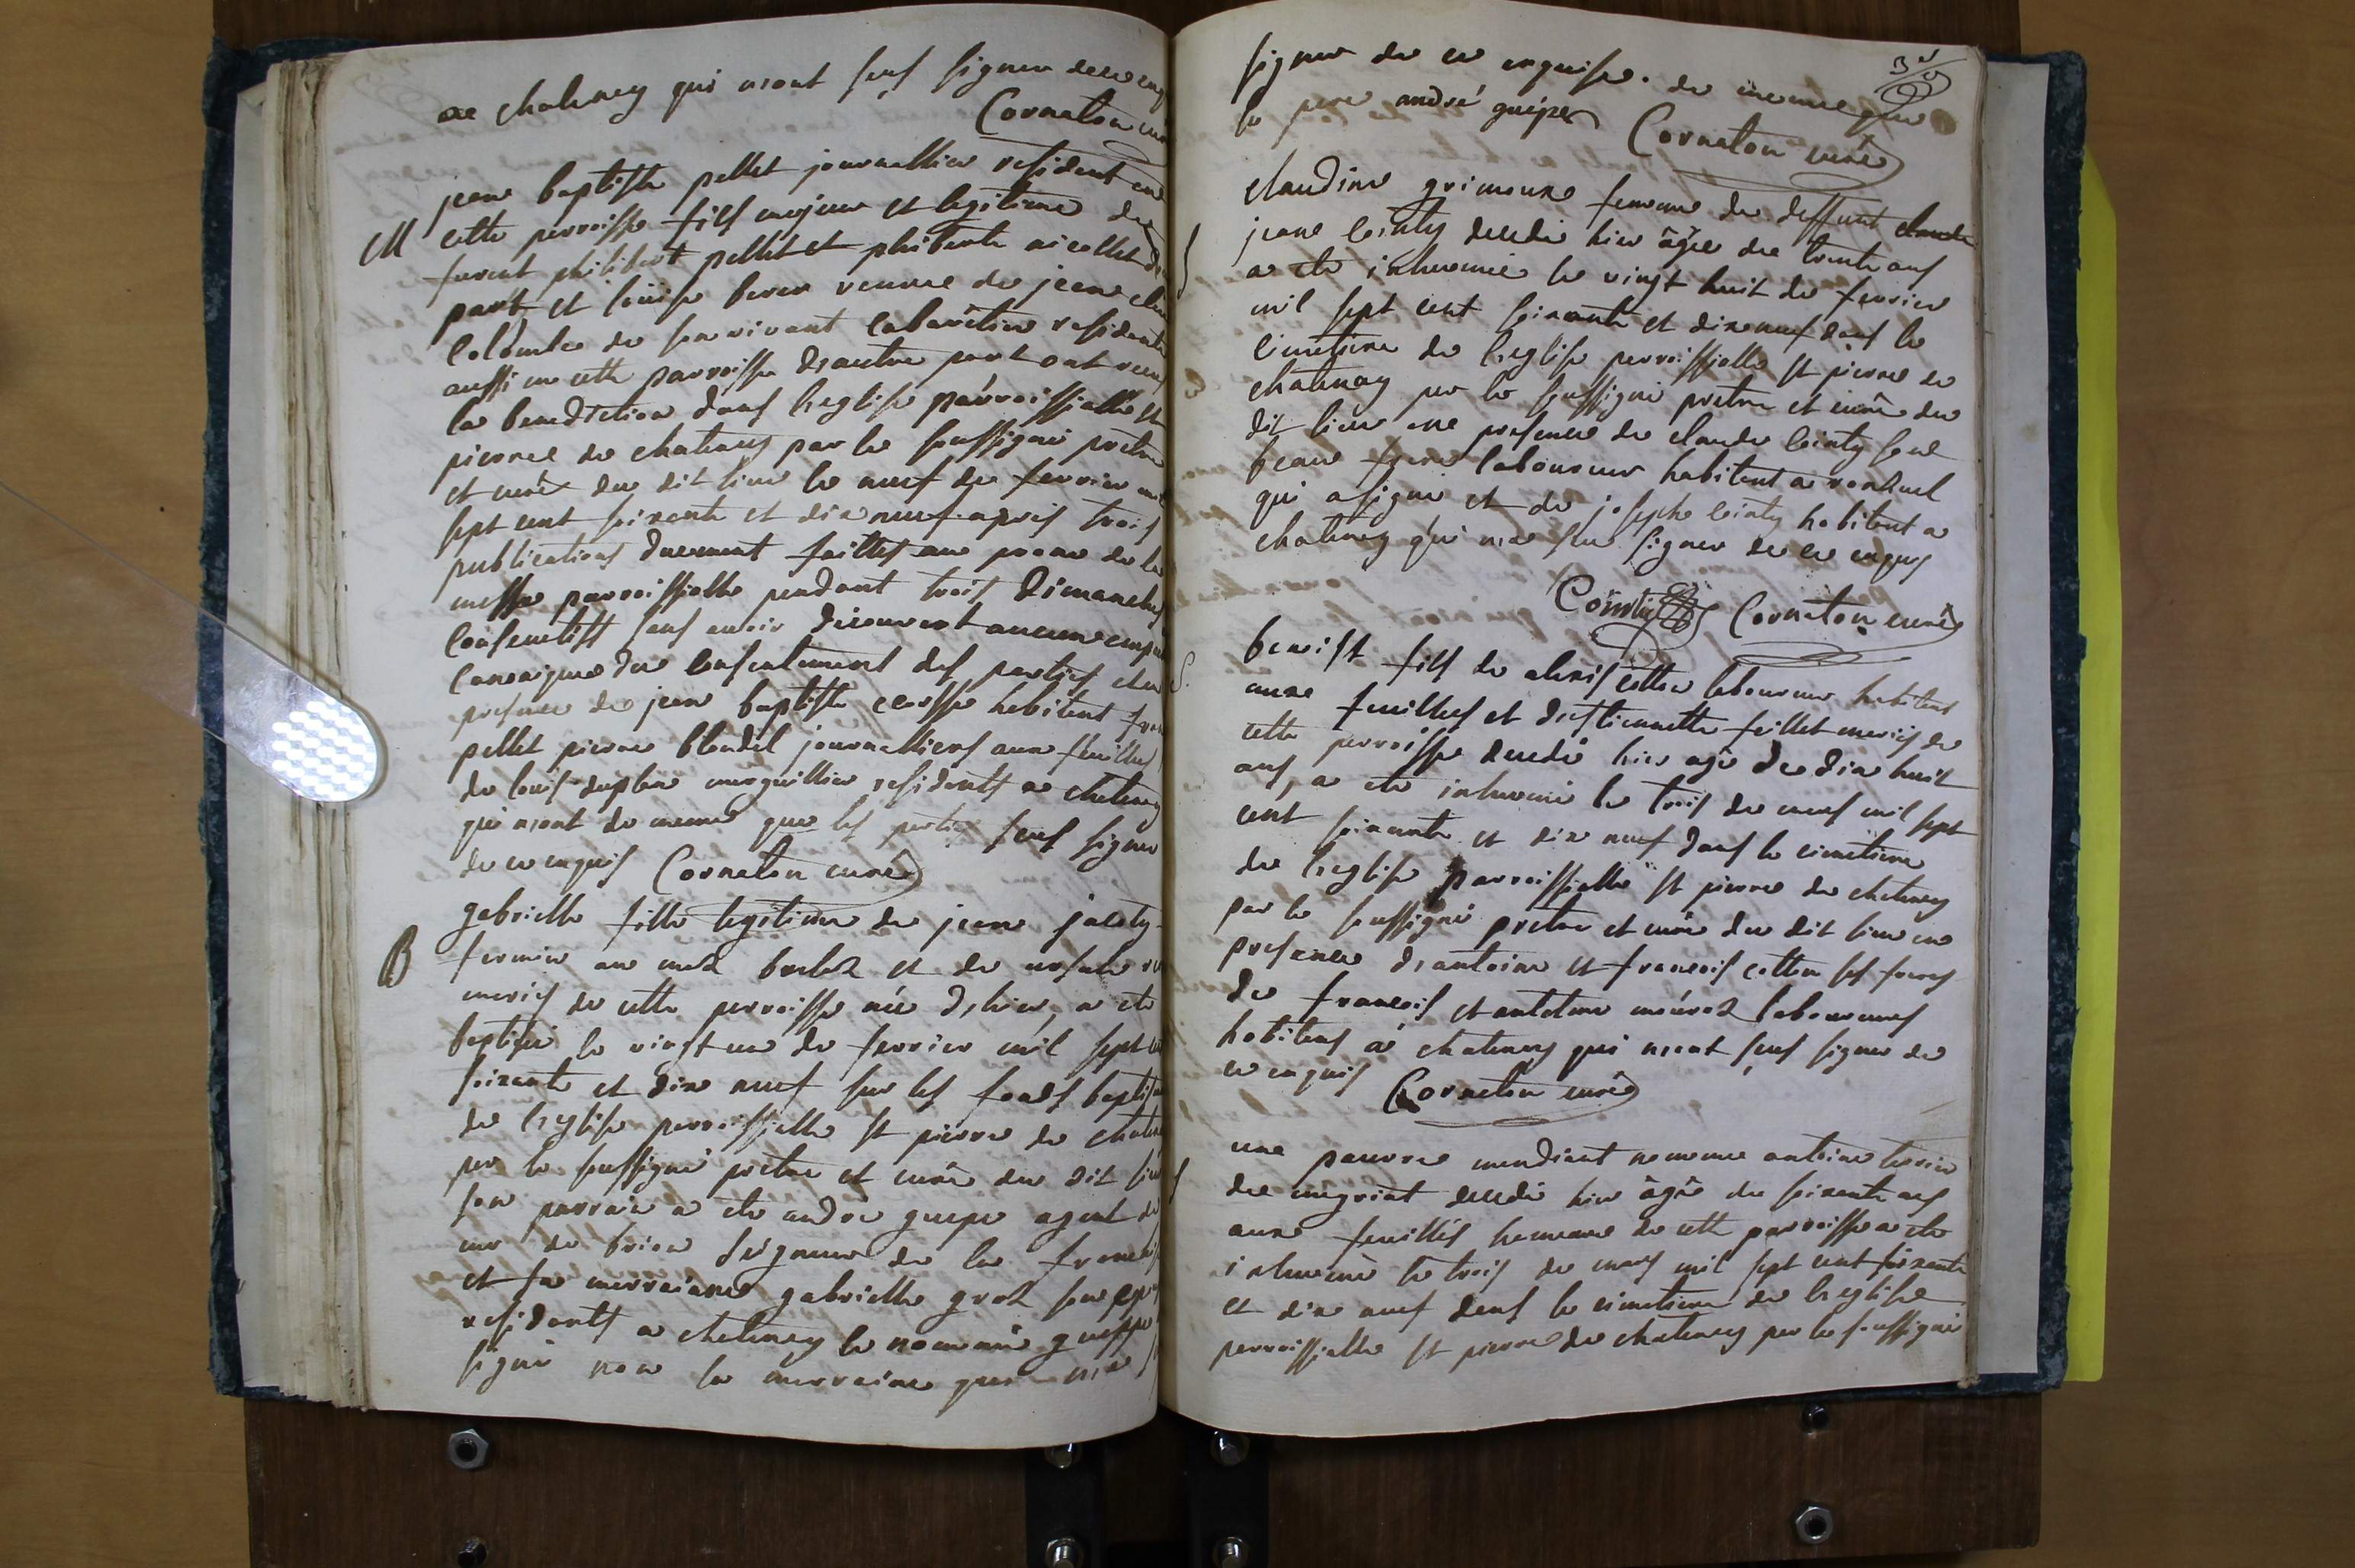 a chatenay qui n'ont sçus signer de ce enq
Corneton curé
M
jean baptiste pellet journallier résident en
cette parroisse fils majeur et legitime de
furent philibert pellet et philiberte nicollet d'
part, et loüise veuve de jean
Colombe de son vivant cabaretier résidente
aussi en cette parroisse d'autre part ont reçus
la benediction dans l'eglise parroissialle st
pierre de chatenay par le soussigné pretre
et curé du dit lieu le neuf de fevrier mil
sept cent soixante et dix neuf après trois
publications duement faittes au prone de la
messe parroissialle pendant trois Dimanches
Consecutifs sans avoir découvert aucun emp
du consentement des parties et en
presence de jean baptiste habitent
pellet pierre blondel journalliers aux feuilles
de louis duplex marguillier résidents a chatenay
qui n'ont de meme que les parties sçus signer
de ce enquis Corneton curé
B
gabrielle fille legitime de jean jacoty
fermier au et de ursule
mariés de cette parroisse née d'hier, a eté
baptisée le vingt un de fevrier mil sept c
soixante et dix neuf sur les fonds baptism
de l'eglise parroissialle st pierre de chaten
par le soussigné pretre et curé du dit lieu
son parrain a eté andré guepe agent de
mr de brion seigneur de la
et sa marraine gabrielle groz son
résidents a chatenay le nommé gueppe
signé non la marraine qui n'a
signer de ce enquise. de meme que
le pere andré guêpe Corneton curé
claudine grimoux femme de deffunt claude
jean cointy decedé hier âgée de trente ans
a ete inhumée le vingt huit de fevrier
mil sept cent soixante et dix neuf dans le
cimetiere de l'eglise parroissialle st pierre de
chatenay par le soussigné pretre et curé du
dit lieu en presence de claude cointy son
beau frere laboureur habitent a
qui a signé et de joseph cointy habitent a
chatenay qui n'a sçu signer de ce enquis
Cointy Corneton curé
S.
benoist fils de alexis cottin laboureur habitent
aux feuilles et d'estiennette feillet mariés de
cette parroisse decedé hier agé de dix huit
ans, a ete inhumé le trois de mars mil sept
cent soixante et dix neuf dans le cimetiere
de l'eglise parroissialle st pierre de chatenay
par le soussigné pretre et curé du dit lieu en
presence d'antoine et françois cottin ses freres
de françois et antoine laboureurs
habitens a chatenay qui n'ont sçus signer de
ce enquis Corneton curé
S
un pauvre mendiant nommé antoine
de decedé hier âgé de soixante ans
aux feuilles hameau de cette parroisse a ete
inhumé le trois de mars mil sept cent soixante
et dix neuf dans le cimetiere de l'eglise
parroissialle st pierre de chatenay par le soussigné